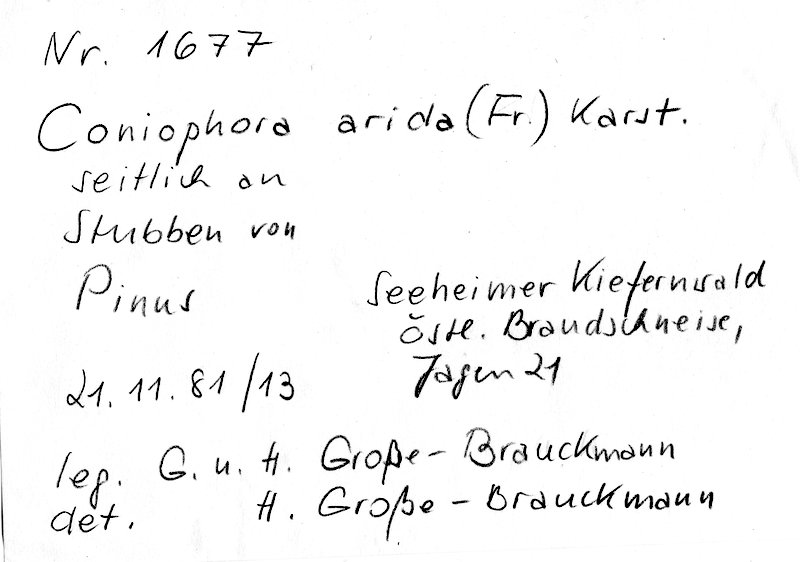 Nr. 1677
Coniophora arida (Fr.) Karst.
seitlich an
Stubben von
Pinus
Seeheimer Kiefernwald
östl. Brandschneise,
Jagen 21
21. 11. 81/13
leg. G. u. H. Große-Brauckmann
det. H. Große-Brauckmann